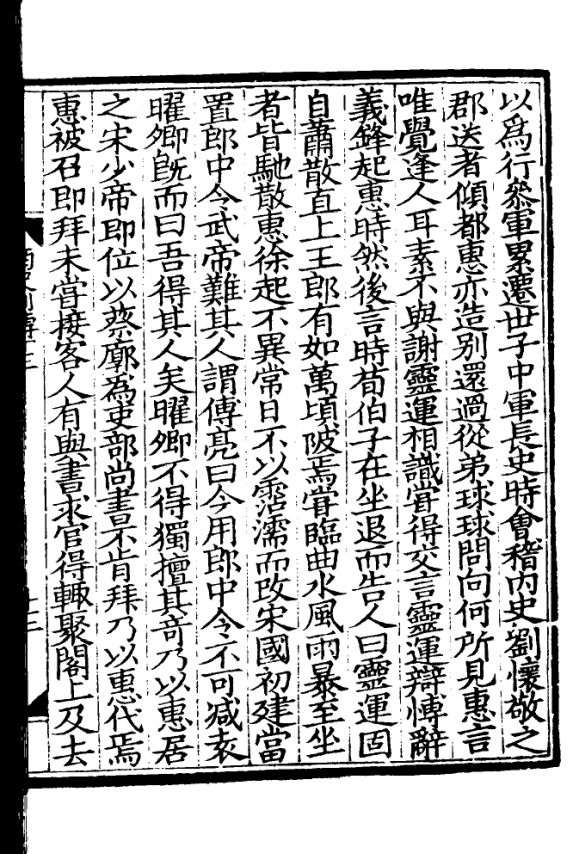 以爲行叅軍累遷世子中軍長史時會稽內史劉懷敬之
郡送者傾都惠亦造別還過從弟球球問向何所見惠言
唯覺逢人耳素不與謝靈運相識甞得交言靈運辯愽辭
義鋒起惠時然後言時荀伯子在坐退而告人曰靈運固
自蕭散直上王郎有如萬頃陂焉甞臨曲水風雨暴至坐
者皆馳散惠徐起不異常日不以霑濡而改宋國初建當
置郎中令武帝難其人謂傅亮曰今用郎中令不可减袁
曜卿旣而曰吾得其人矣曜卿不得獨擅其奇乃以惠居
之宋少帝即位以蔡廓為吏部尚書不肯拜乃以惠代焉
惠被召即拜未甞接客人有與書求官得輒聚閣上及去